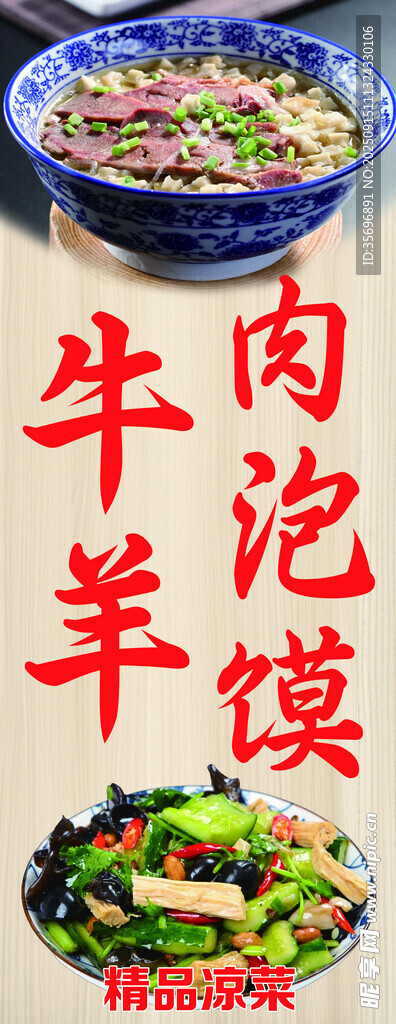 牛羊
肉泡馍
精品凉菜
ID:35696891 NO:20250915111324330106
昵享网 www.nipic.cn